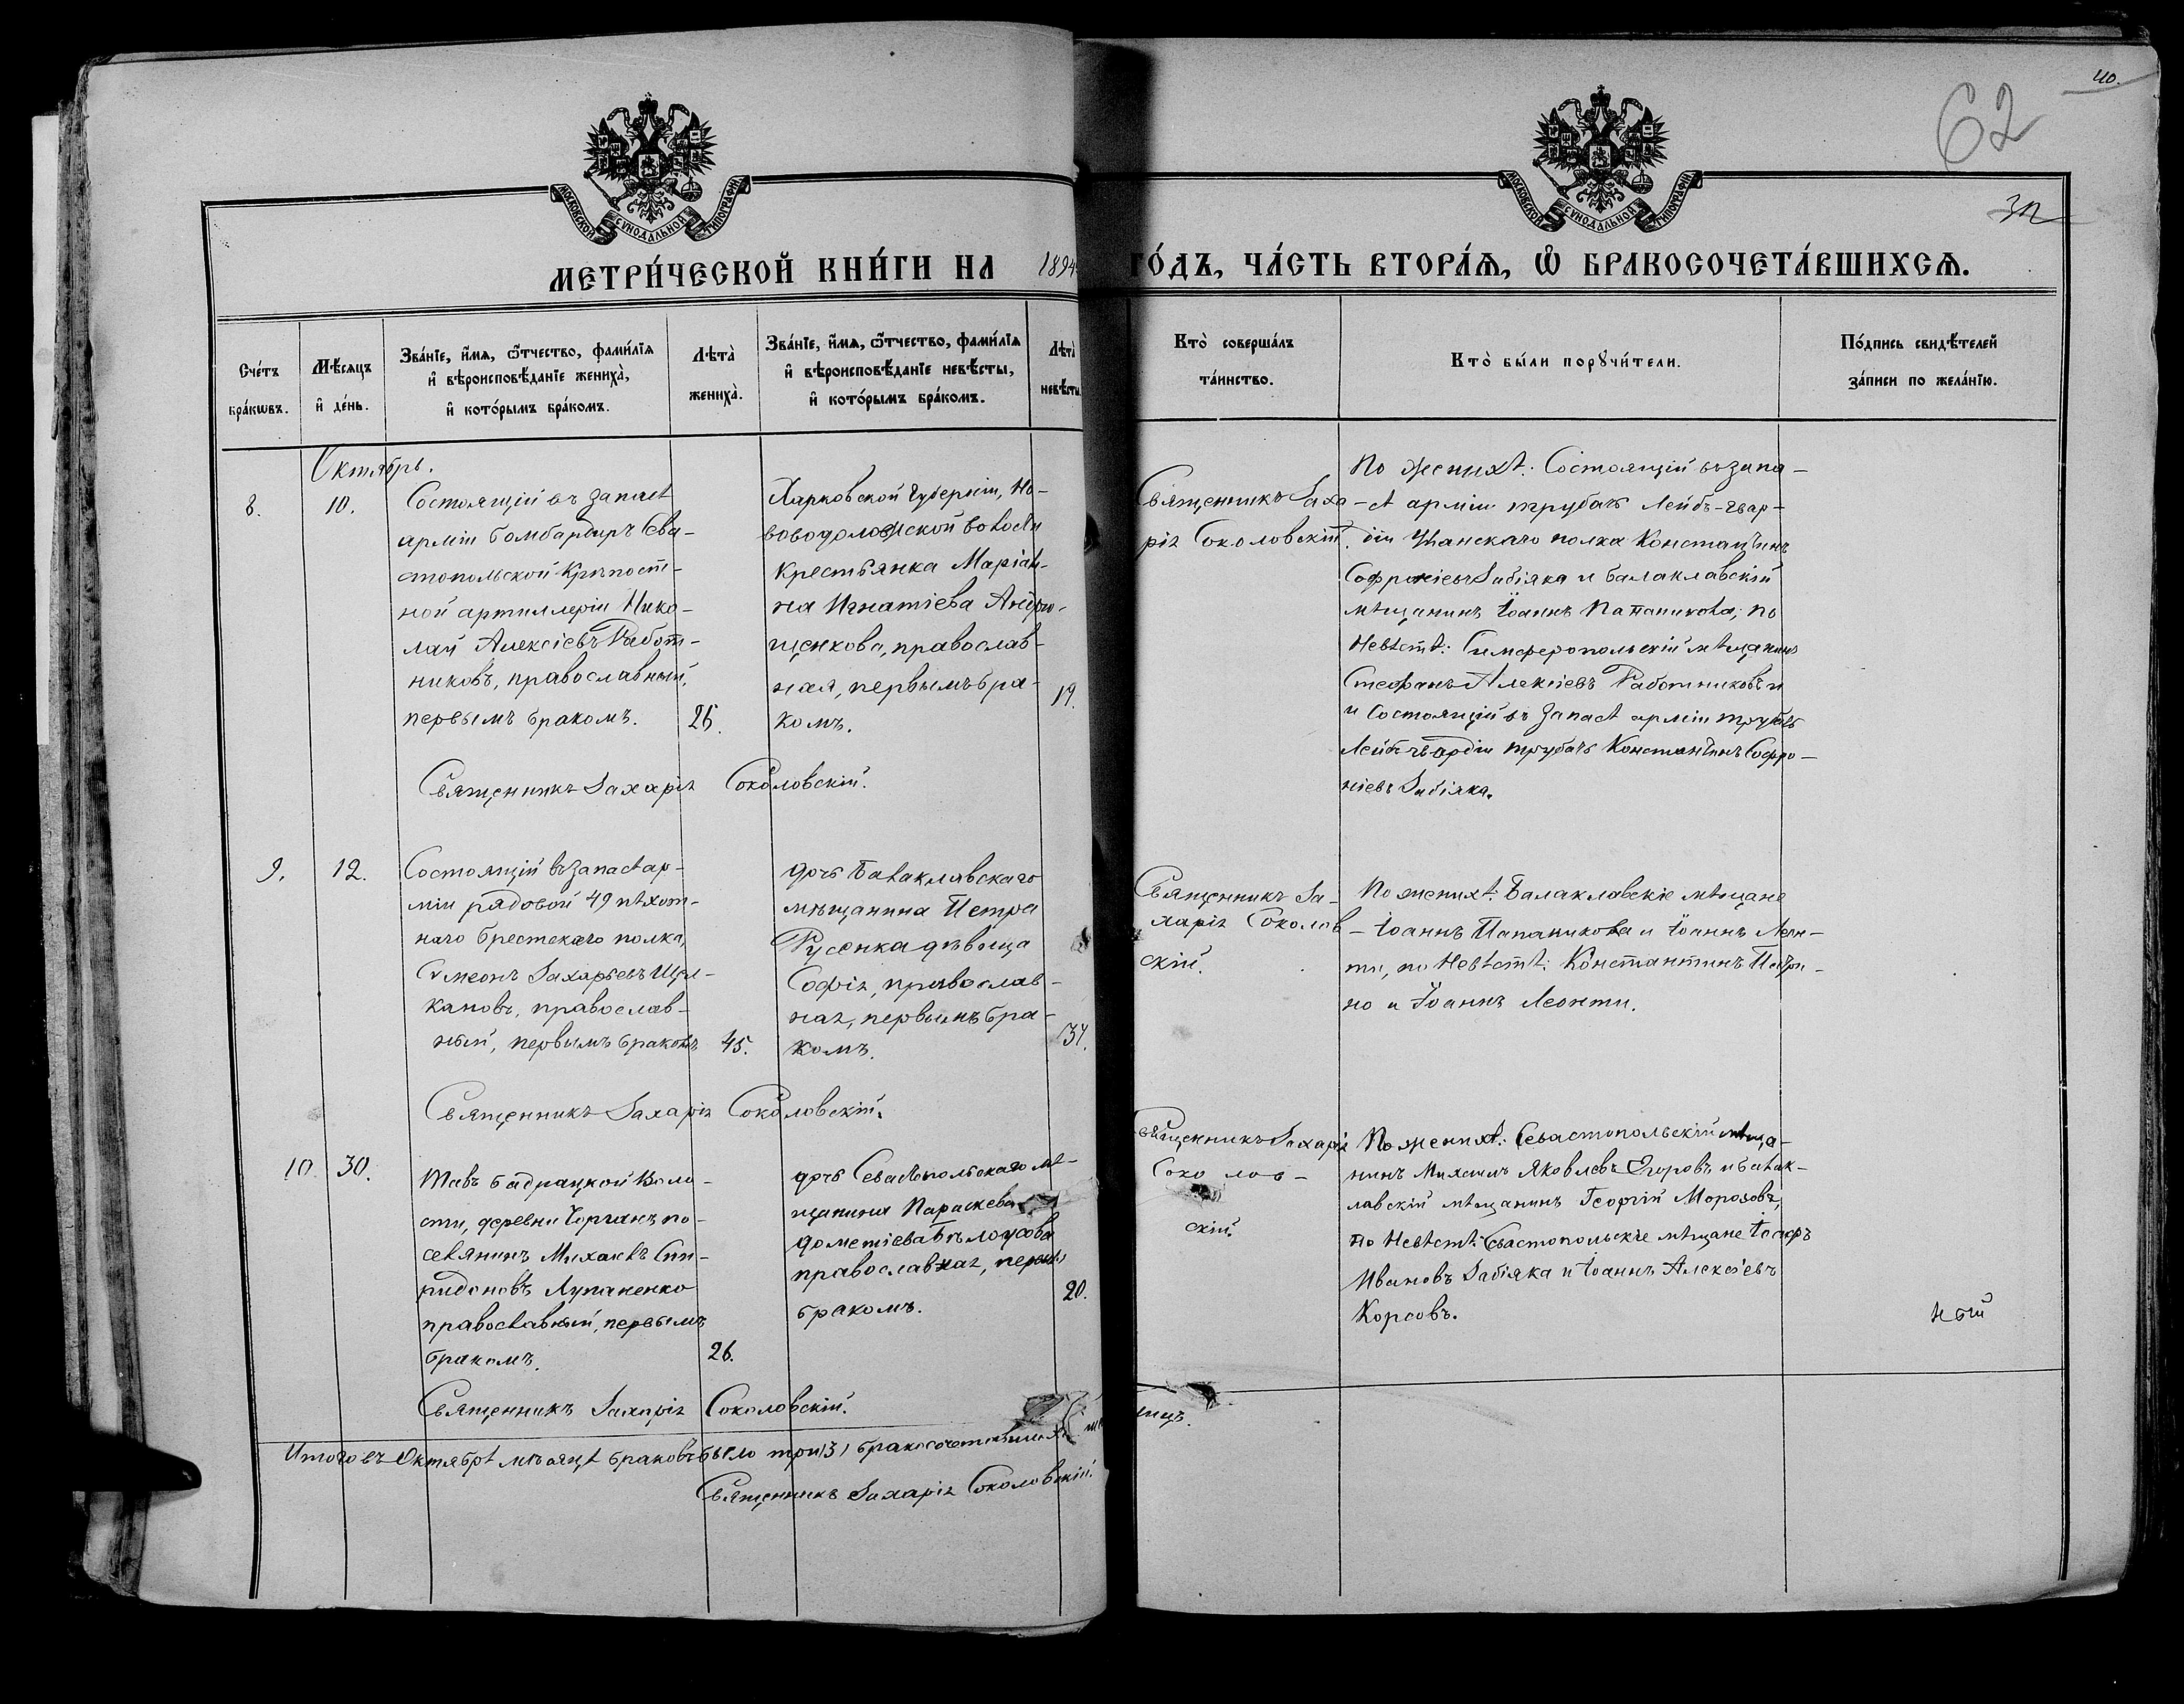 40.
62
МОСКОВСКОЙ СѴНОДАЛЬНОЙ ТИПОГРАФІИ
МОСКОВСКОЙ СѴНОДАЛЬНОЙ ТИПОГРАФІИ
МЕТРИ́ЧЕСКОЙ КНИ́ГИ НА 1894 ГО́ДЪ, ЧА́СТЬ ВТОРА́Я, Ѿ БРАКОСОЧЕТА́ВШИХСЯ.
Сче́тъ бра́кѡвъ.
Мѣ́сяцъ и҆ де́нь.
Зва́нїе, и҆́мя, ѻ҆́тчество, фами́лїя
и҆ вѣроисповѣ́данїе жениха̀,
и҆ кото́рымъ бра́комъ.
Лѣта̀ жениха̀.
Зва́нїе, и҆́мя, ѻ҆́тчество, фами́лїя
и҆ вѣроисповѣ́данїе невѣ́сты,
и҆ кото́рымъ бра́комъ.
Лѣта̀ невѣ́сты.
Кто̀ соверша́лъ
та́инство.
Кто̀ бы́ли порꙋчи́тели.
По́дпись свидѣ́телей
за́писи по жела́нїю.
Октябрь.
8.
10.
Состоящій въ запасѣ
арміи бомбардиръ Сева-
стопольской Крѣпост-
ной артиллеріи Нико-
лай Алексіевъ Работ-
никовъ, православный,
первымъ бракомъ.
26.
Харковской Губерніи, Но-
воводоложской волости
крестьянка Маріан-
на Игнатіева Андрю-
щенкова, православ-
ная, первымъ бра-
комъ.
19.
Священникъ Заха-
рія Соколовскій.
По женихѣ: Состоящій въ запа-
сѣ арміи трубачъ Лейбъ-гвар-
діи Уланскаго полка Константинъ
Софроніевъ Забіяка и балаклавскій
мѣщанинъ Іоаннъ Папаникова; по
Невѣстѣ: Симферопольскій мѣщанинъ
Стефанъ Алексіевъ Работниковъ и
и Состоящій въ запасѣ арміи трубачъ
Лейбъ гвардіи трубачъ Константинъ Софро-
ніевъ Забіяка.
Священникъ Захарія Соколовскій.
9.
12.
Состоящій въ запасѣ ар-
міи рядовой 49 пѣхот-
наго брестскаго полка,
Сѵмеонъ Захарьевъ Щел-
кановъ, православ-
ный, первымъ бракомъ
45.
дочь Балаклавскаго
мѣщанина Петра
Русенка дѣвица
Софія, православ-
ная, первымъ бра-
комъ.
34.
Священникъ За-
харія Соколов-
скій.
По женихѣ: Балаклавскіе мѣщане
Іоаннъ Папаникова и Іоаннъ Леон-
ти, по Невѣстѣ: Константинъ
но и Іоаннъ Леонти.
Священникъ Захарія Соколовскій.
10
30.
Тавъ бадрацкой Воло-
сти, деревни Чоргунъ по-
селянинъ Михаилъ Спи-
ридоновъ Лупаненко
православный, первымъ
бракомъ.
26.
дочь Севастопольскаго мѣ-
щанина Параскева
дометіева Бѣлоусова
православная, первымъ
бракомъ.
20.
Священникъ Захарія
Соколов-
скій.
По женихѣ: Севастопольскій мѣща-
нинъ Михаилъ Яковлевъ Егоровъ и балак-
лавскій мѣщанинъ Георгій Морозовъ,
по Невѣстѣ: Севастопольскіе мѣщане Іосифъ
Ивановъ Забіяка и Іоаннъ Алексіевъ
Корсовъ.
ный
Священникъ Захарія Соколовскій.
Итого въ Октябрѣ мѣсяцѣ браковъ было три (3)
Священникъ Захарія Соколовскій.